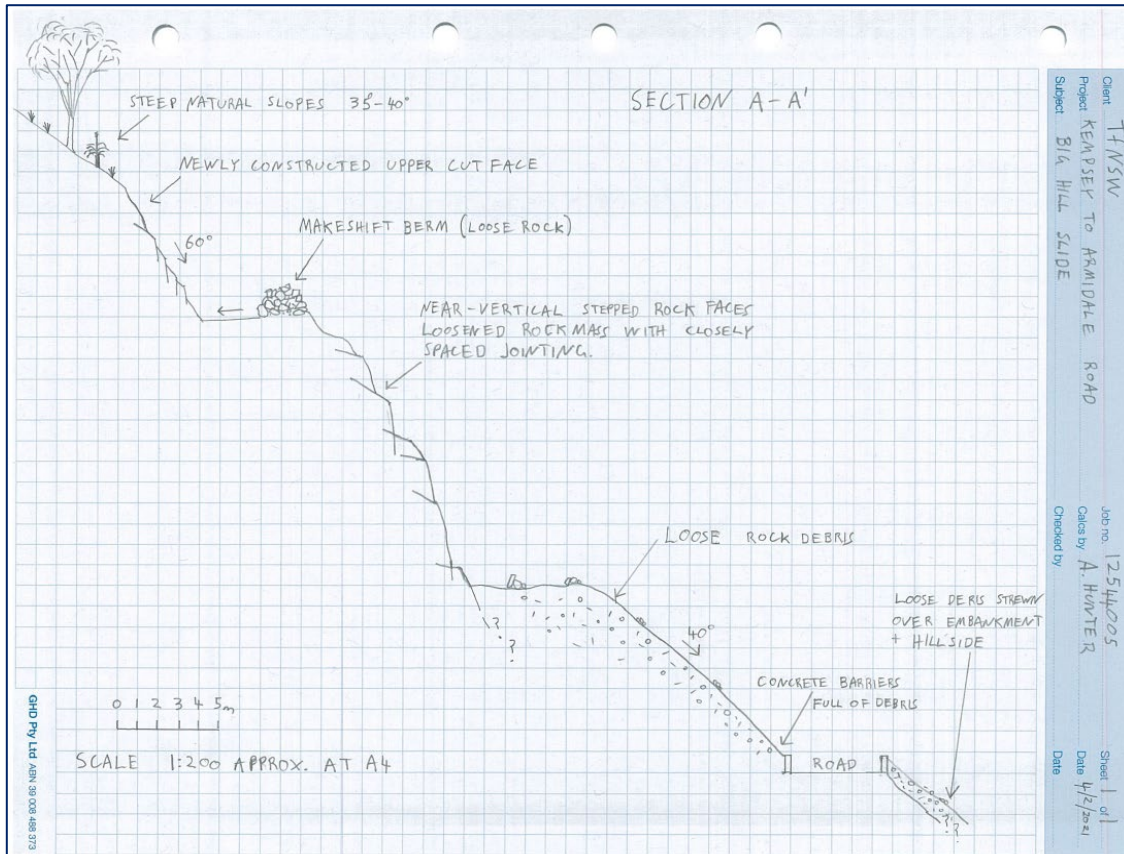 STEEP NATURAL SLOPES 35-40°
SECTION A-A'
NEWLY CONSTRUCTED UPPER CUT FACE
MAKESHIFT BERM (LOOSE ROCK)
60°
NEAR-VERTICAL STEPPED ROCK FACES
LOOSENED ROCKMASS WITH CLOSELY
SPACED JOINTING.
LOOSE ROCK DEBRIS
LOOSE DERIS STREWN
OVER EMBANKMENT
+ HILLSIDE
40°
?
?
?
CONCRETE BARRIERS
FULL OF DEBRIS
ROAD
? ?
0 1 2 3 4 5m
SCALE 1:200 APPROX. AT A4
GHD Pty Ltd ABN 39 008 488 373
Client TfNSW
Project KEMPSEY TO ARMIDALE ROAD
Subject BIG HILL SLIDE
Job no. 12544005
Calcs by A. HUNTER
Checked by
Sheet 1 of 1
Date 4/2/2021
Date